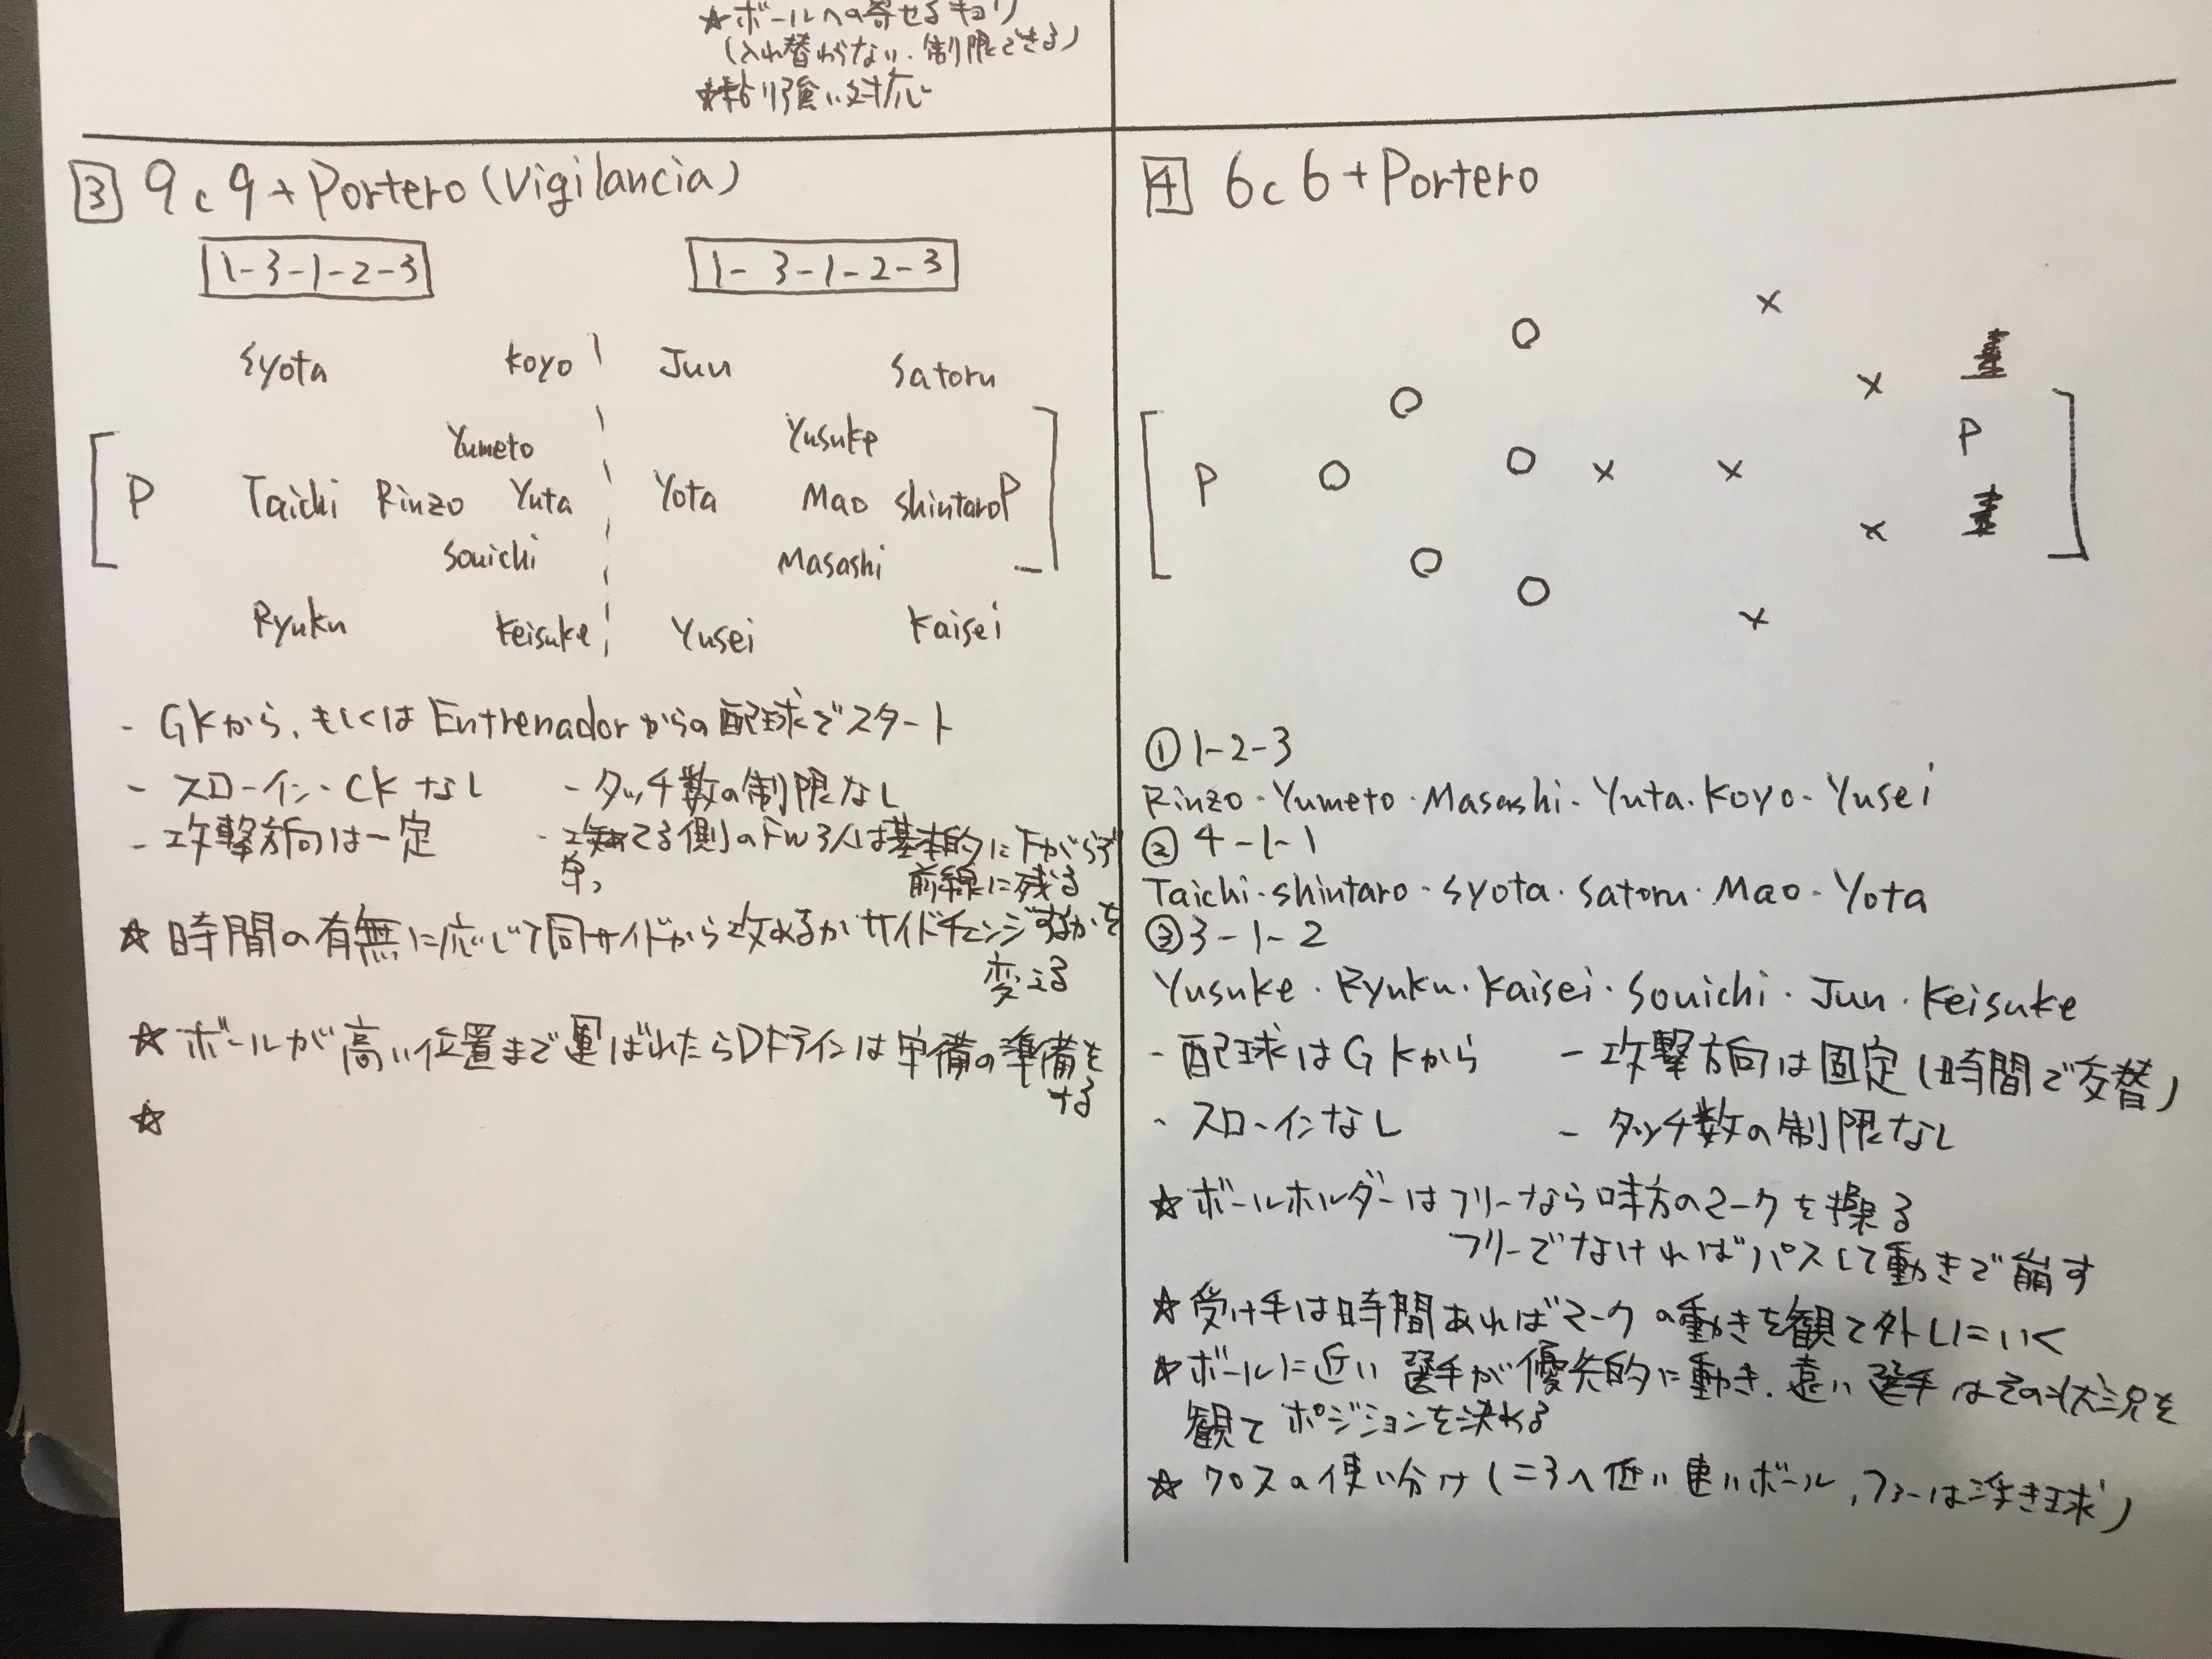 ☆ボールへの寄せるキョリ
(入れ替わらない、制限できる)
☆粘り強い対応
3 9c9+Portero(Vigilancia)
1-3-1-2-3
1-3-1-2-3
Syota Koyo Jun Satoru
Yumeto Yusuke
P Taichi Rinzo Yuta Yota Mao shintaro P
Souichi Masashi
Ryuku Keisuke Yusei Kaisei
- GKから、もしくはEntrenadorからの配球でスタート
- スローイン・CKなし - タッチ数の制限なし
- 攻撃方向は一定 - 攻めてる側のFW3人は基本的に下がらず
前線に残る
☆時間の有無に応じて同サイドから攻めるかサイドチェンジするかを
変える
☆ボールが高い位置まで運ばれたらDFラインは守備の準備を
する
☆
4 6c6+Portero
P P
①1-2-3
Rinzo・Yumeto・Masashi・Yuta・Koyo・Yusei
②4-1-1
Taichi・shintaro・syota・satoru・Mao・Yota
③3-1-2
Yusuke・Ryuku・Kaisei・Souichi・Jun・Keisuke
- 配球はGKから - 攻撃方向は固定(時間で交替)
- スローインなし - タッチ数の制限なし
☆ボールホルダーはフリーなら味方のマークを操る
フリーでなければパスして動きで崩す
☆受け手は時間あればマークの動きを観て外しにいく
☆ボールに近い選手が優先的に動き、遠い選手はその状況を
観てポジションを決める
☆クロスの使い分け(ニアへ低い速いボール,ファーは浮き球)